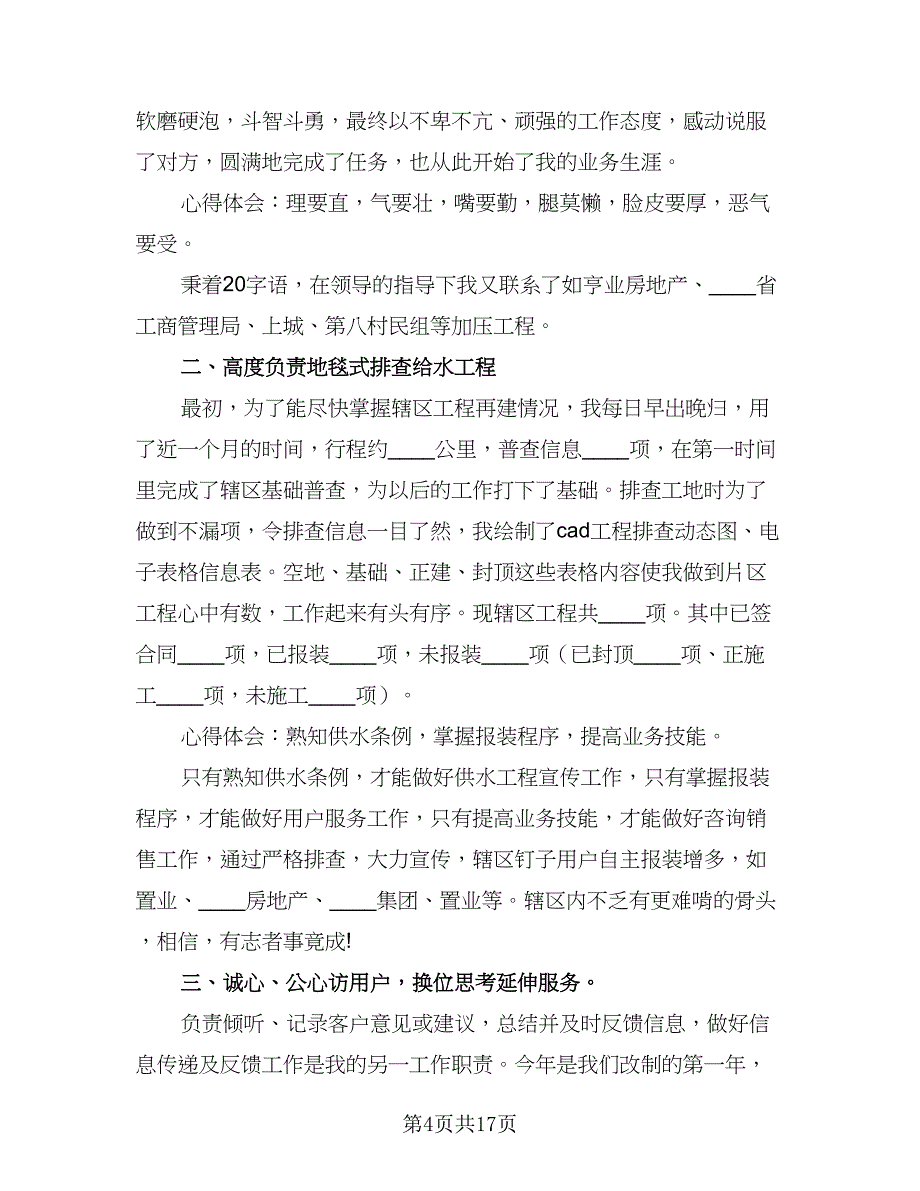 软磨硬泡，斗智斗勇，最终以不卑不亢、顽强的工作态度，感动说服
了对方，圆满地完成了任务，也从此开始了我的业务生涯。
心得体会：理要直，气要壮，嘴要勤，腿莫懒，脸皮要厚，恶气
要受。
秉着20字语，在领导的指导下我又联系了如亨业房地产、____省
工商管理局、上城、第八村民组等加压工程。
二、高度负责地毯式排查给水工程
最初，为了能尽快掌握辖区工程再建情况，我每日早出晚归，用
了近一个月的时间，行程约____公里，普查信息____项，在第一时间
里完成了辖区基础普查，为以后的工作打下了基础。排查工地时为了
做到不漏项，令排查信息一目了然，我绘制了cad工程排查动态图、电
子表格信息表。空地、基础、正建、封顶这些表格内容使我做到片区
工程心中有数，工作起来有头有序。现辖区工程共____项。其中已签
合同____项，已报装____项，未报装____项（已封顶____项、正施
工____项，未施工____项）。
心得体会：熟知供水条例，掌握报装程序，提高业务技能。
只有熟知供水条例，才能做好供水工程宣传工作，只有掌握报装
程序，才能做好用户服务工作，只有提高业务技能，才能做好咨询销
售工作，通过严格排查，大力宣传，辖区钉子用户自主报装增多，如
置业、____房地产、____集团、置业等。辖区内不乏有更难啃的骨头
，相信，有志者事竟成!
三、诚心、公心访用户，换位思考延伸服务。
负责倾听、记录客户意见或建议，总结并及时反馈信息，做好信
息传递及反馈工作是我的另一工作职责。今年是我们改制的第一年，
第4页共17页